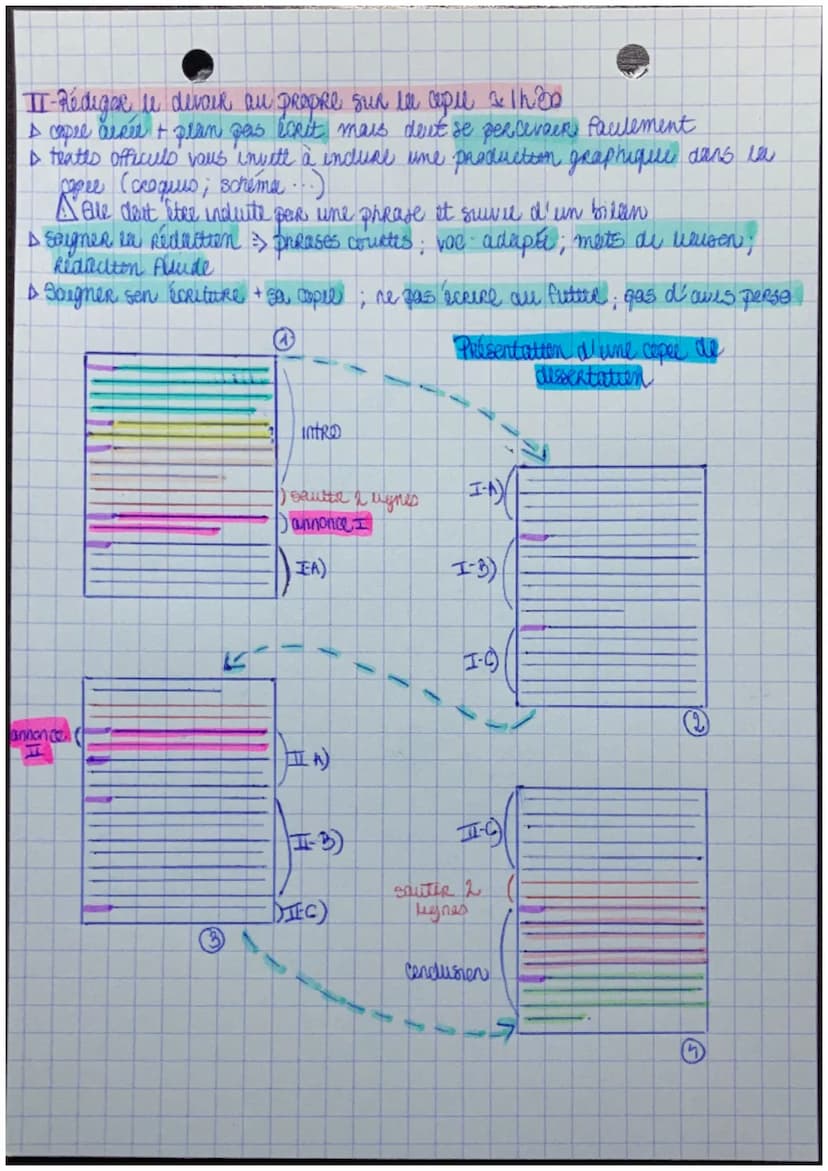 II-Rédiger le devoir au propre sur la copie ≈ 1h20
▷ copie aérée + plan pas écrit mais doit se percevoir facilement
▷ textes officiels vous invite à inclure une production graphique dans la
copie (croquis ; schéma ...)
⚠ Elle doit être induite par une phrase et suivie d'un bilan
▷ Soigner la rédaction => phrases courtes ; voc. adapté ; mots de liaison ;
Rédaction fluide
▷ Soigner son écriture + sa copie ; ne pas écrire au futur ; pas d'avis perso
①
Présentation d'une copie de
dissertation
INTRO
I-A)
sauter 2 lignes
annonce I
I-A)
I-B)
I-C)
②
annonce
II
II A)
II-B)
II-C)
sauter 2
lignes
II-C)
③
conclusion
④